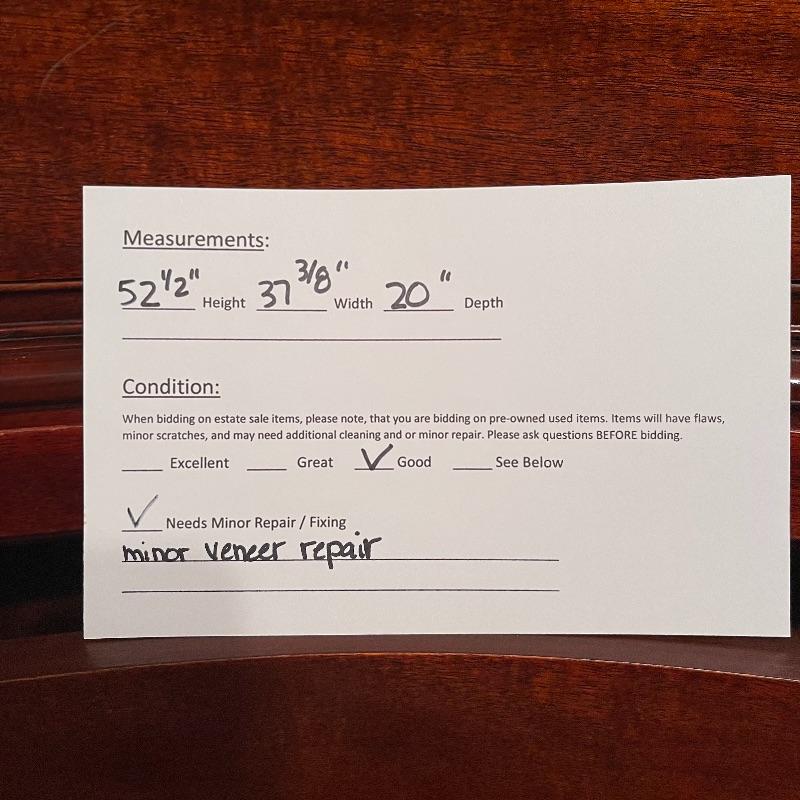 Measurements:
52 1/2" Height 37 3/8" Width 20" Depth
Condition:
When bidding on estate sale items, please note, that you are bidding on pre-owned used items. Items will have flaws,
minor scratches, and may need additional cleaning and or minor repair. Please ask questions BEFORE bidding.
____ Excellent ____ Great ✓ Good ____ See Below
✓ Needs Minor Repair / Fixing
minor veneer repair